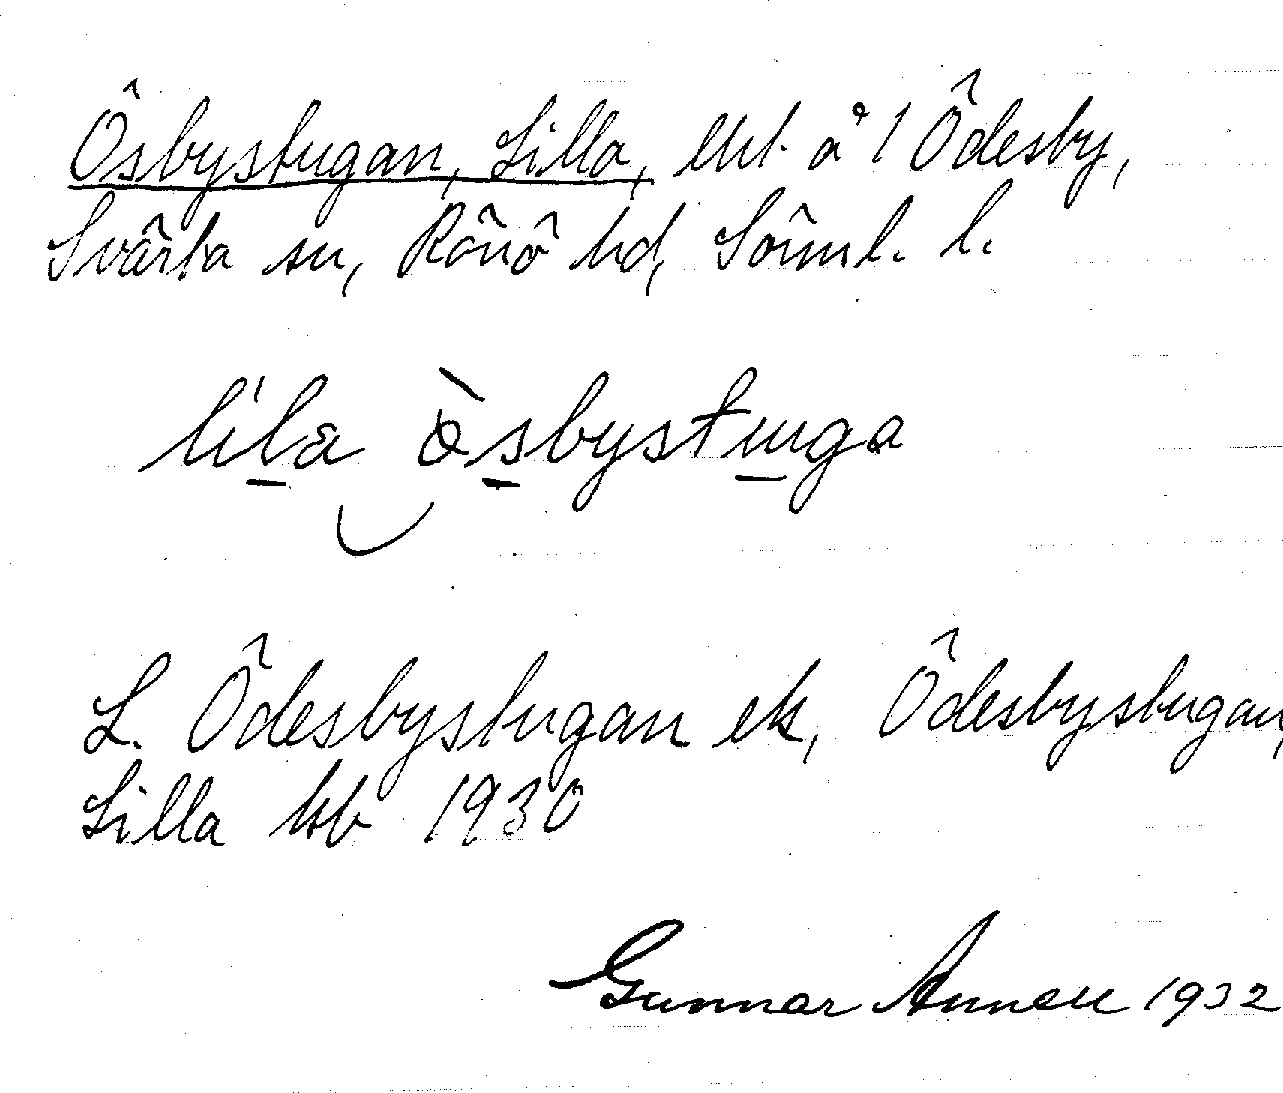 Ösbystugan, Lilla, lht. å 1 Ödesby,
Svärta sn, Rönö hd, Sörml. l.
lı́la ö̀sbystuga
L. Ödesbystugan ek, Ödesbystugan,
Lilla kb 1930
Gunnar Annell 1932